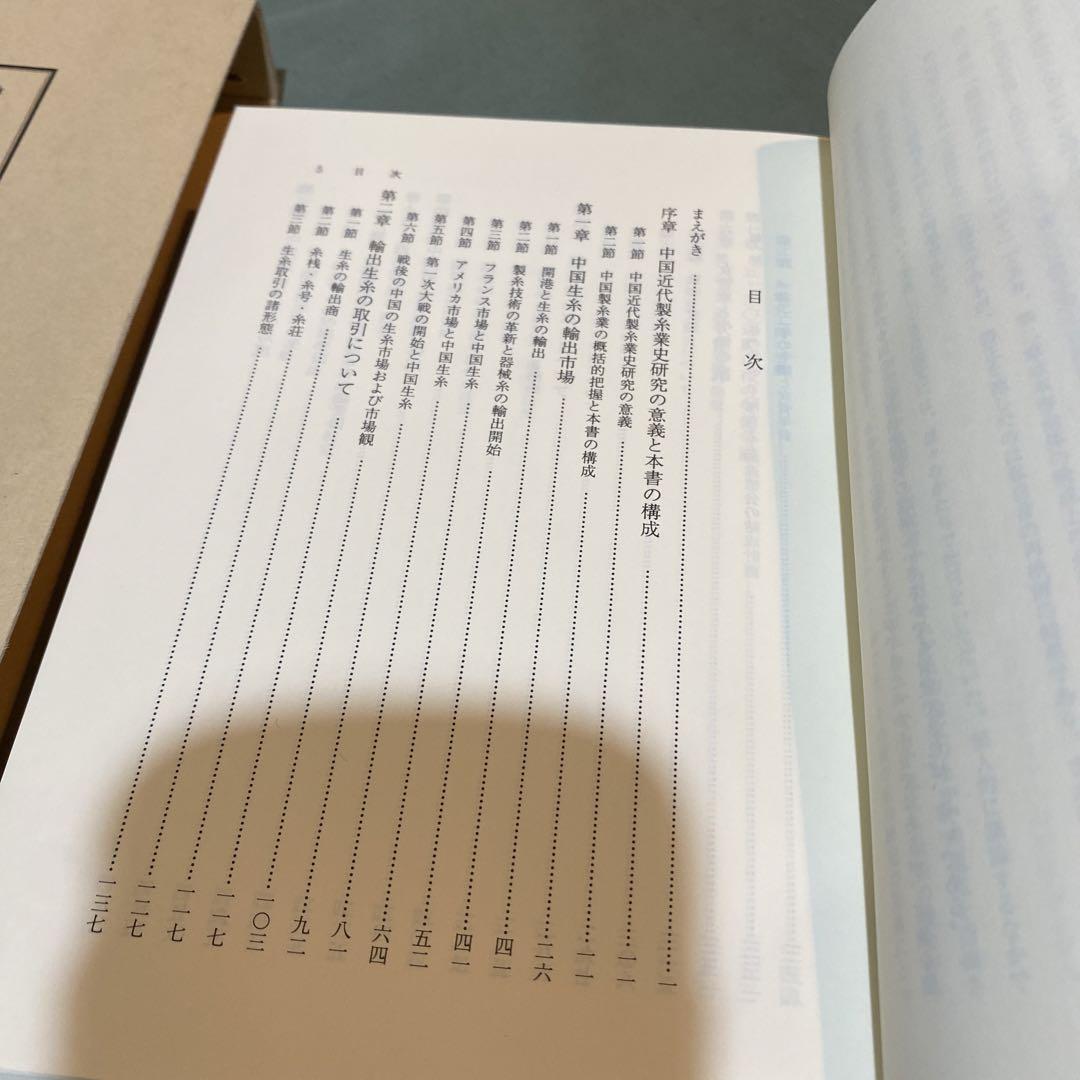 目次
まえがき……一
序章 中国近代製糸業史研究の意義と本書の構成……一一
第一節 中国近代製糸業史研究の意義……一一
第二節 中国製糸業の概括的把握と本書の構成……二六
第一章 中国生糸の輸出市場……四一
第一節 開港と生糸の輸出……四一
第二節 製糸技術の革新と器械糸の輸出開始……五二
第三節 フランス市場と中国生糸……六四
第四節 アメリカ市場と中国生糸……八一
第五節 第一次大戦の開始と中国生糸……九二
第六節 戦後の中国の生糸市場および市場観……一〇三
第二章 輸出生糸の取引について……一一七
第一節 生糸の輸出商……一一七
第二節 糸桟・糸号・糸荘……一二七
第三節 生糸取引の諸形態……一三七
5 目次